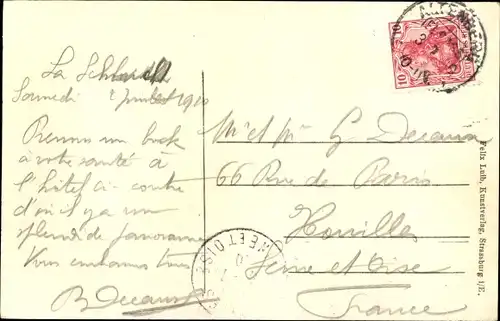 La Schlucht
Samedi 2 Juillet 1910
Prenons un bock
à votre santé à
l'hôtel ci-contre
d'où il y a un
splendide panorama
Vous embrassons tous
B Decaux
Mr et Me G Decaux
66 Rue de Paris
Houilles
Seine et Oise
France
10
10
ET OISE
Felix Luib, Kunstverlag, Strassburg i/E.